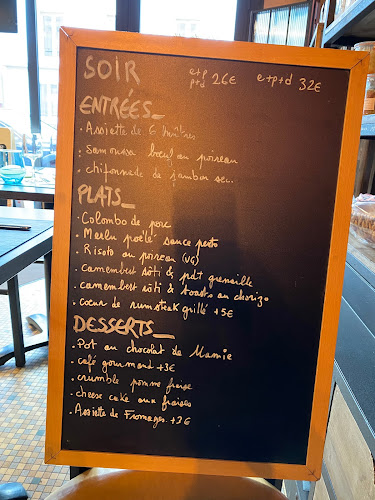 SOIR
e+p
p+d 26€ e+p+d 32€
ENTRÉES_
. Assiette de 6 huîtres
. Samoussa bœuf ou poireau
. chiffonnade de jambon sec.
PLATS_
. Colombo de porc
. Merlu poêlé sauce pesto
. Risoto au poireau (VG)
. camembert rôti & pdt grenaille
. camembert rôti & toasts au chorizo
. coeur de rumsteak grillé +5€
DESSERTS_
. Pot au chocolat de Mamie
. café gourmand +3€
. crumble pomme fraise
. cheese cake aux fraises
. Assiette de Fromages +3€